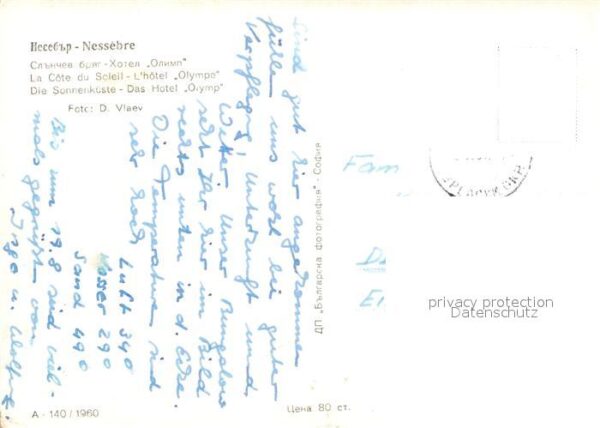 Несебър - Nessèbre
Слънчев бряг - Хотел „Олимп"
La Côte du Soleil - L'hôtel „Olympe"
Die Sonnenküste - Das Hotel „Olymp"
Foto: D. Vlaev
Sind gut hier angekommen
fühlen uns wohl bei guter
Verpflegung, Unterkunft und
Wetter. Unser Bungalow
seht Ihr hier im Bild
rechts unten in d. Ecke.
Die Temperaturen sind
sehr hoch
Luft 34°
Wasser 29°
Sand 49°
Bis zum 19.8 sind viel-
mals gegrüßt von
Inge u. Wolfg.
ДП „Българска фотография" - София
Fam
privacy protection
Datenschutz
А - 140 / 1960
Цена 80 ст.